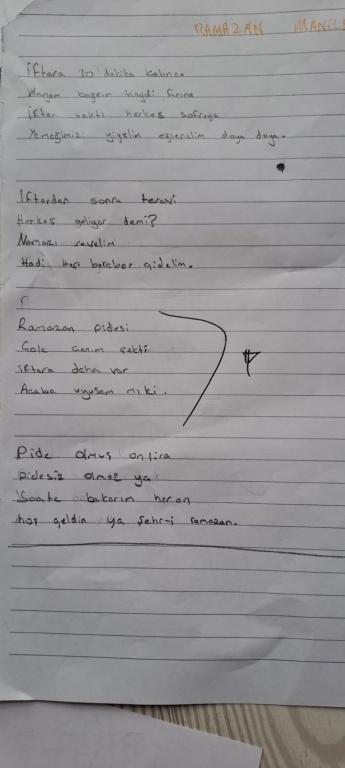 RAMAZAN MANİL
İftara 10 dakika kalınca
bağrın haydi fırına
İftar vakti herkes sofraya
Yemeğimizi yiyelim eğlenelim doya doya.
İftardan sonra teravi
Herkes geliyor demi?
Namazı sevelim
Hadi Hep beraber gidelim.
Ramazan pidesi
Çok canım çekti
iftara daha var
Acaba uyusam mı ki.
Pide olmuş on lira
Pidesiz olmaz ya
Saate bakarım her an
hoş geldin ya şehr-i ramazan.